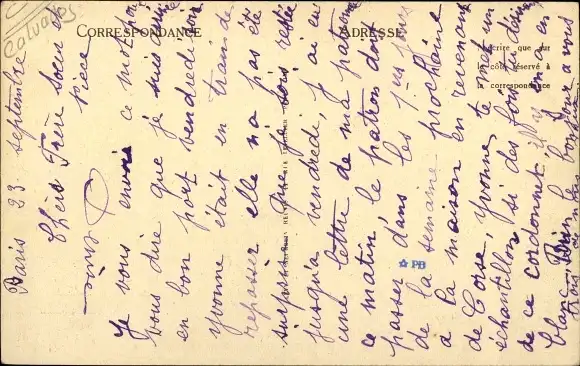 Calvados
CORRESPONDANCE
ADRESSE
N'écrire que sur
le côté réservé à
la correspondance
Paris 23 septembre
Chers Frère Soeur et
Nièce
Je vous envoie ce mot pour
vous dire que je suis arrivée
en bon port vendredi soir
Yvonne était en train de
repasser elle n'a pas été
surprise que je sois restée
jusqu'a vendredi, J'ai eu
une lettre de ma patronne
ce matin le patron doit
passer dans les 1ers jours
de la semaine prochaine
a la maison en revenant
de Corse Yvonne te met un
échantillon si des fois tu désire
de ce cordonnet il y en a en
blanc
bonjour a vous
PB